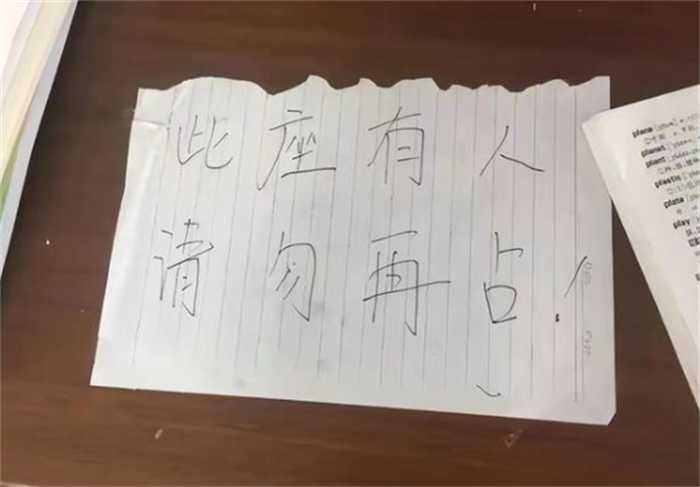 此座有人
请勿再占!
plane
planet
plant
plastic
plate
play